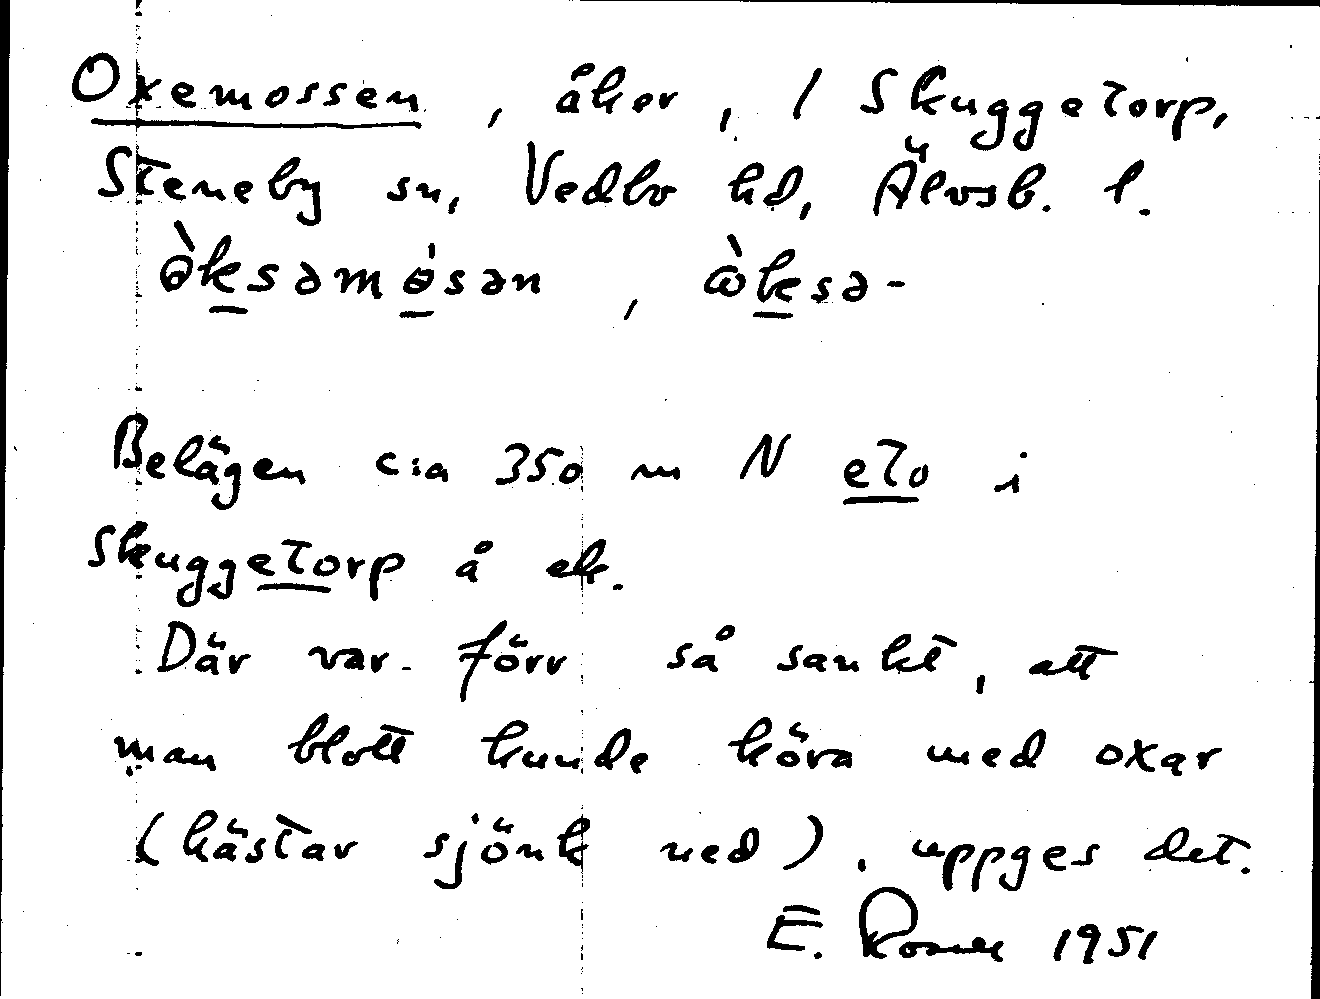 Oxemossen, åker, / Skuggetorp,
Steneby sn, Vedbo hd, Älvsb. l.
Belägen c:a 350 m N eto i
Skuggetorp å ek.
Där var förr så sankt, att
man blott kunde köra med oxar
(hästar sjönk ned), uppges det.
E. 1951